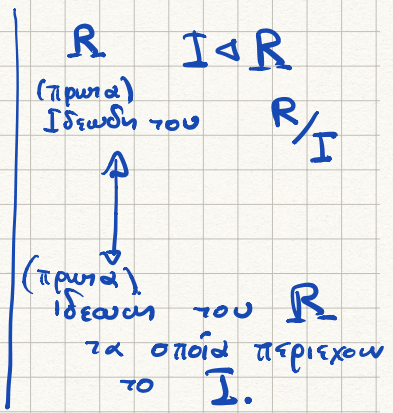 R I ◁ R
(πρωτα)
Ιδεωδη του
R/I
(πρωτα)
ιδεωδη του R
τα οποία περιεχουν
το I.